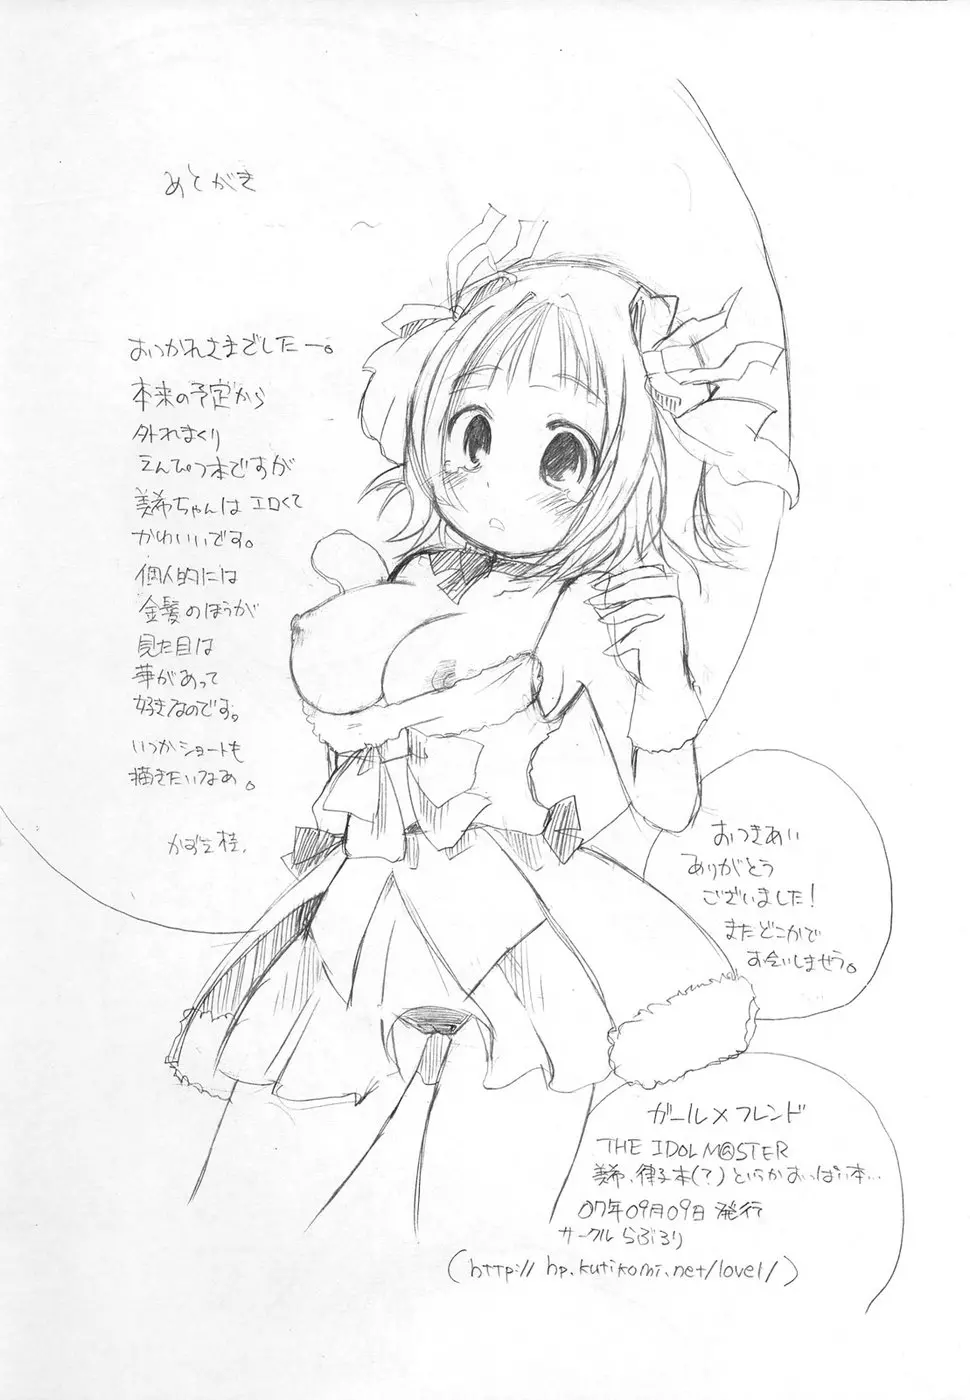 あとがき
おつかれさまでしたー。
本来の予定から
外れまくり
えんぴつ本ですが
美希ちゃんはエロくて
かわいいです。
個人的には
金髪のほうが
見た目は
華があって
好きなのです。
いつかショートも
描きたいなあ。
かずと桂.
おつきあい
ありがとう
ございました!
またどこかで
お会いしませう。
ガール×フレンド
THE IDOLM@STER
美希、律子本(?)というかおっぱい本…
07年09月09日 発行
サークル らぶろり
(http://hp.kutikomi.net/lovel/)